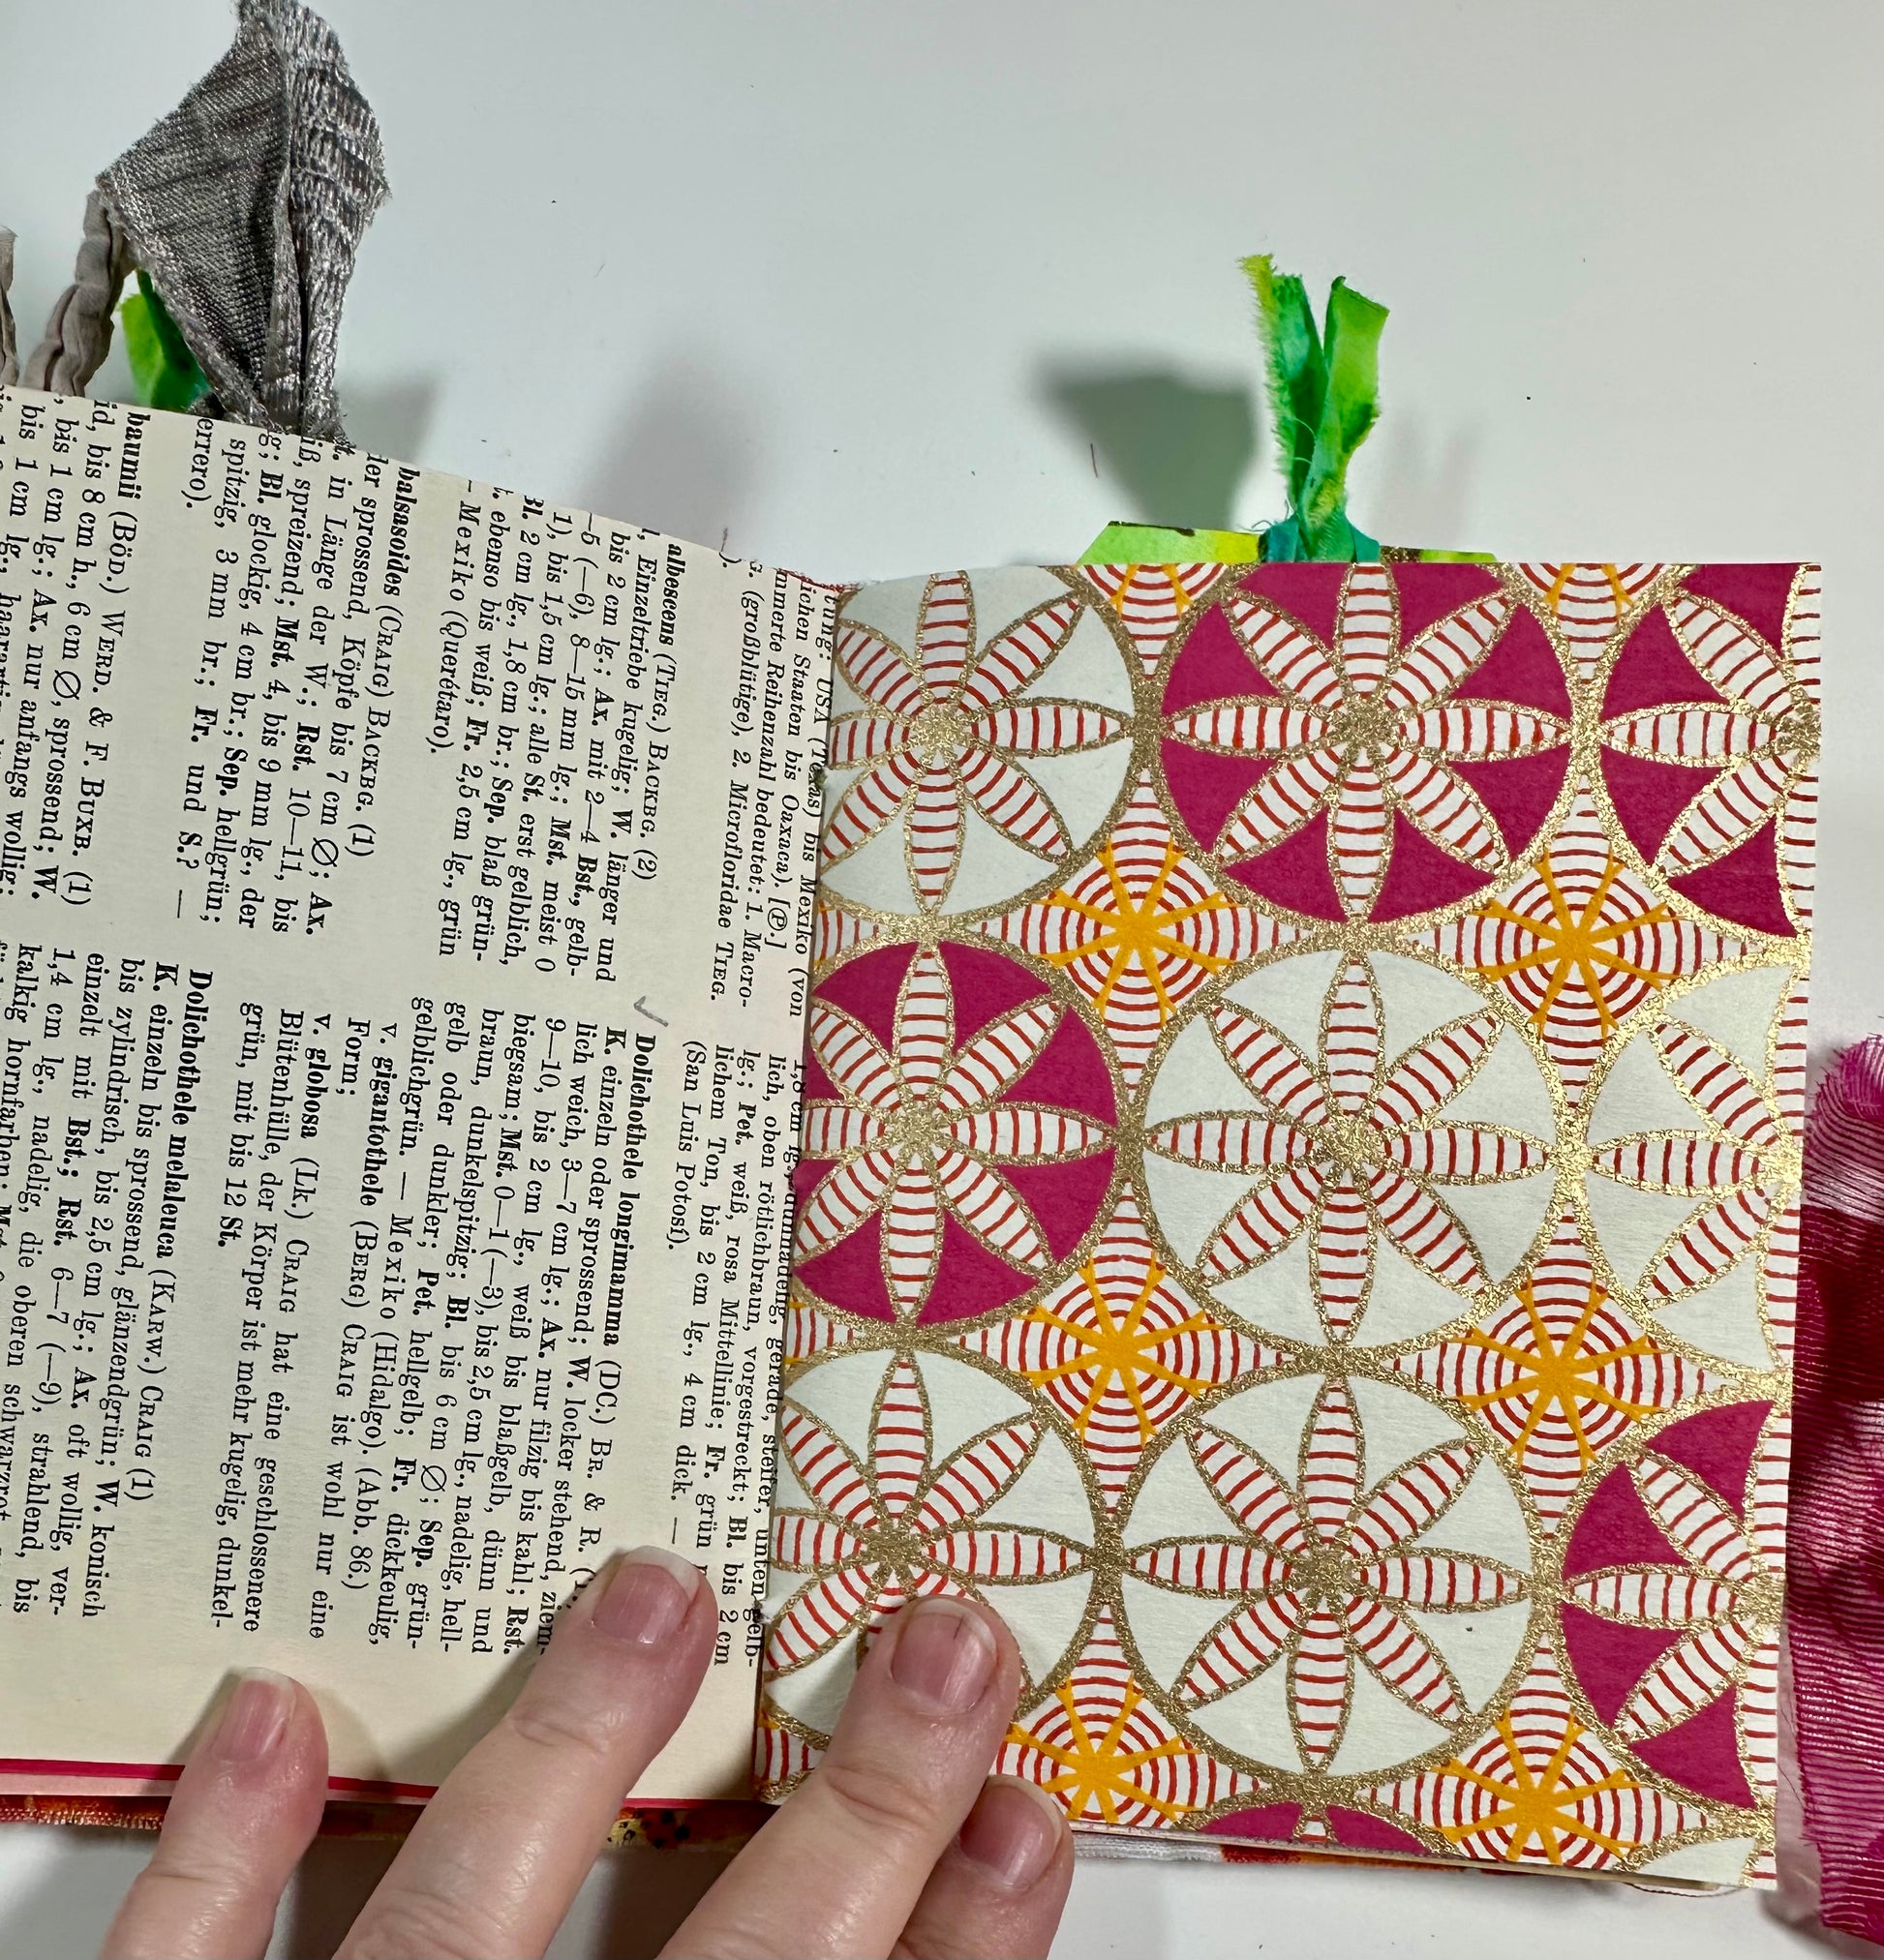 tung: USA (Texas) bis Mexiko (von
lichen Staaten bis Oaxaca). [Ⓟ.]
mmerte Reihenzahl bedeutet: 1. Macro-
(großblütige), 2. Microfloridae TIEG.
albescens (TIEG.) BACKBG. (2)
Einzeltriebe kugelig; W. länger und
bis 2 cm lg.; Ax. mit 2—4 Bst., gelb-
—5 (—6), 8—15 mm lg.; Mst. meist 0
1), bis 1,5 cm lg.; alle St. erst gelblich,
Bl. 2 cm lg., 1,8 cm br.; Sep. blaß grün-
t. ebenso bis weiß; Fr. 2,5 cm lg., grün
— Mexiko (Querétaro).
balsasoides (CRAIG) BACKBG. (1)
der sprossend, Köpfe bis 7 cm Ø; Ax.
t. in Länge der W.; Rst. 10—11, bis
iß, spreizend; Mst. 4, bis 9 mm lg., der
g; Bl. glockig, 4 cm br.; Sep. hellgrün;
spitzig, 3 mm br.; Fr. und S.? —
errero).
baumii (BÖD.) WERD. & F. BUXB. (1)
id, bis 8 cm h., 6 cm Ø, sprossend; W.
bis 1 cm lg.; Ax. nur anfangs wollig;
bis 1 cm lg., haararti
1,8 cm lg.,
lich, oben rötlichbraun, vorgestreckt; Bl. bis 2 cm
lg.; Pet. weiß, rosa Mittellinie; Fr. grün
lichem Ton, bis 2 cm lg., 4 cm dick. —
(San Luis Potosí).
Dolichothele longimamma (DC.) BR. & R.
K. einzeln oder sprossend; W. locker stehend, ziem-
lich weich, 3—7 cm lg.; Ax. nur filzig bis kahl; Rst.
9—10, bis 2 cm lg., weiß bis blaßgelb, dünn und
biegsam; Mst. 0—1 (—3), bis 2,5 cm lg., nadelig, hell-
braun, dunkelspitzig; Bl. bis 6 cm Ø; Sep. grün-
gelb oder dunkler; Pet. hellgelb; Fr. dickkeulig,
gelblichgrün. — Mexiko (Hidalgo). (Abb. 86.)
v. gigantothele (BERG) CRAIG ist wohl nur eine
Form;
v. globosa (LK.) CRAIG hat eine geschlossenere
Blütenhülle, der Körper ist mehr kugelig, dunkel-
grün, mit bis 12 St.
Dolichothele melaleuca (KARW.) CRAIG (1)
K. einzeln bis sprossend, glänzendgrün; W. konisch
bis zylindrisch, bis 2,5 cm lg.; Ax. oft wollig, ver-
einzelt mit Bst.; Rst. 6—7 (—9), strahlend, bis
1,4 cm lg., nadelig, die oberen schwarzrot
kalkig hornfarben;